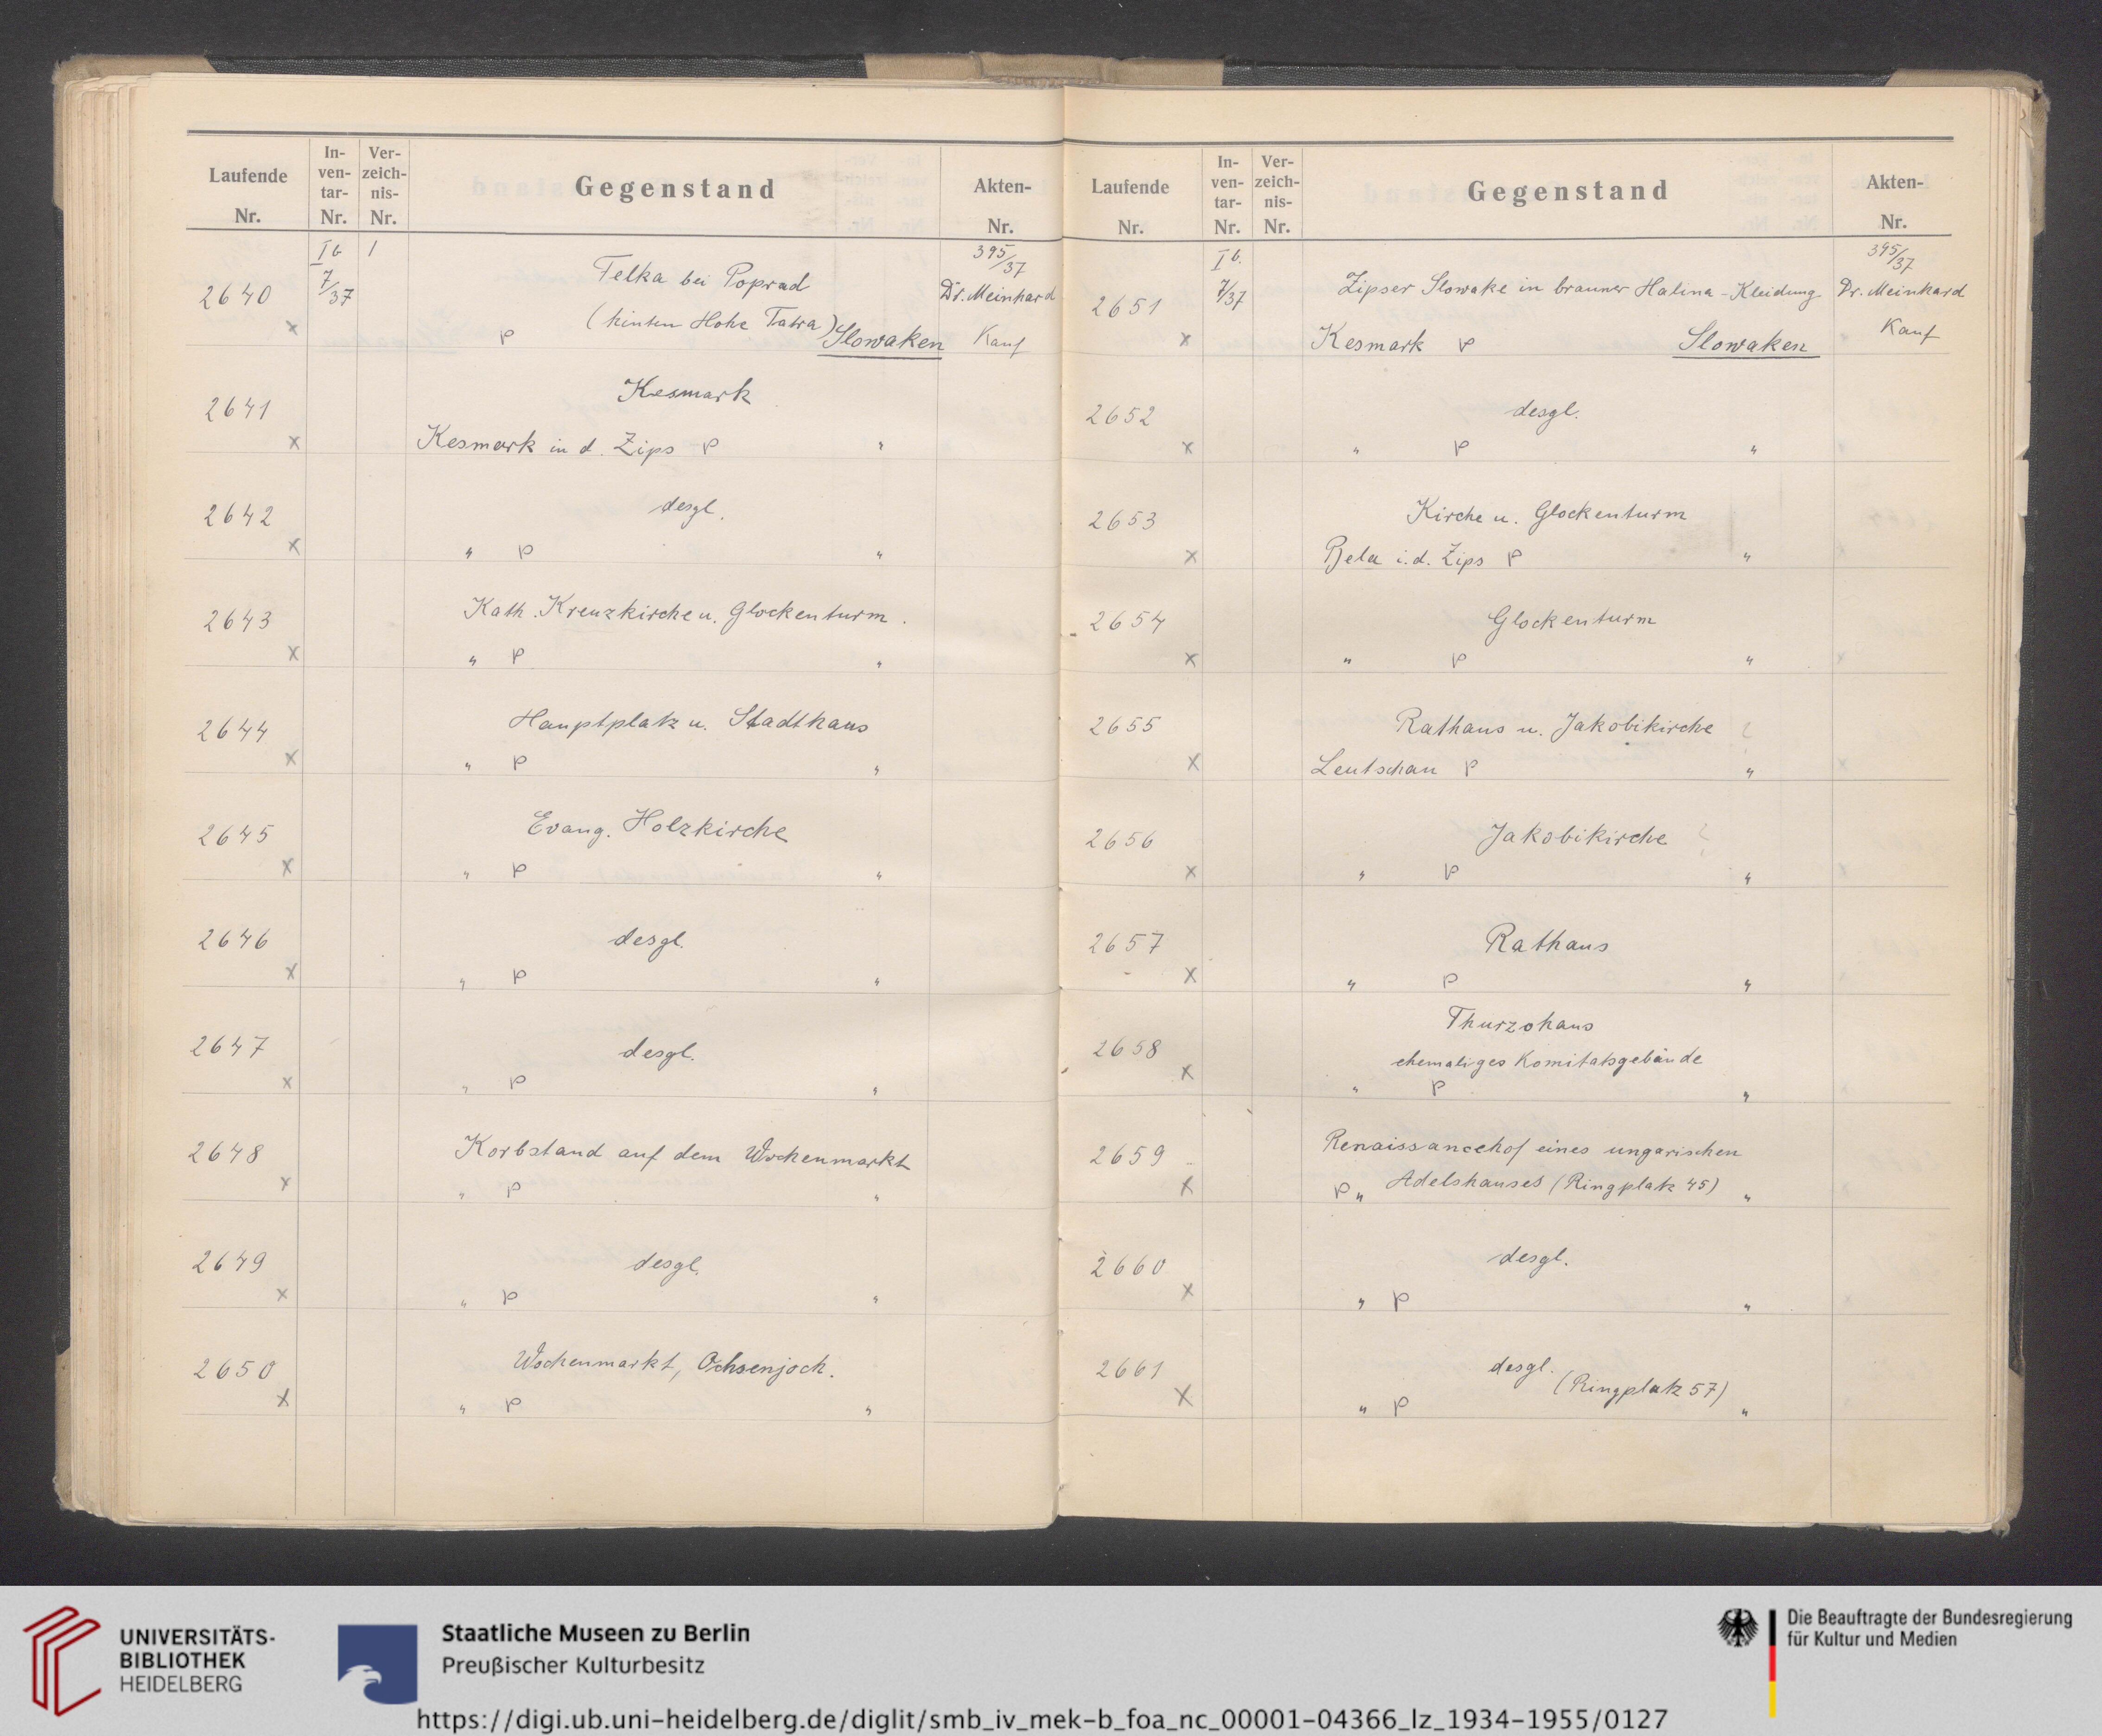 Laufende Nr.
In-ven-tar-Nr.
Ver-zeich-nis-Nr.
Gegenstand
Akten-Nr.
I b 1 395/37
2640 7/37 Felka bei Poprad Dr. Meinhard
x P (hinten Hohe Tatra) Slowaken Kauf
2641 Kesmark
x Kesmark in d. Zips P "
2642 desgl.
x " P "
2643 Kath. Kreuzkirche u. Glockenturm.
x " P "
2644 Hauptplatz u. Stadthaus
x " P "
2645 Evang. Holzkirche
x " P "
2646 desgl.
x " P "
2647 desgl.
x " P "
2648 Korbstand auf dem Wochenmarkt
x " P "
2649 desgl.
x " P "
2650 Wochenmarkt, Ochsenjoch.
x " P "
Laufende Nr.
In-ven-tar-Nr.
Ver-zeich-nis-Nr.
Gegenstand
Akten-Nr.
I b. 395/37
2651 7/37 Zipser Slowake in brauner Halina-Kleidung Dr. Meinhard
x Kesmark P Slowaken Kauf
2652 desgl.
x " P "
2653 Kirche u. Glockenturm
x Bela i.d. Zips P "
2654 Glockenturm
x " P "
2655 Rathaus u. Jakobikirche
x Leutschau P "
2656 Jakobikirche
x " P "
2657 Rathaus
x " P "
Thurzohaus
2658 ehemaliges Komitatsgebäude
x " P "
2659 Renaissancehof eines ungarischen
x P " Adelshauses (Ringplatz 45) "
2660 desgl.
x " P "
2661 desgl.
(Ringplatz 57)
x " P "
UNIVERSITÄTS-
BIBLIOTHEK
HEIDELBERG
Staatliche Museen zu Berlin
Preußischer Kulturbesitz
Die Beauftragte der Bundesregierung
für Kultur und Medien
https://digi.ub.uni-heidelberg.de/diglit/smb_iv_mek-b_foa_nc_00001-04366_lz_1934-1955/0127